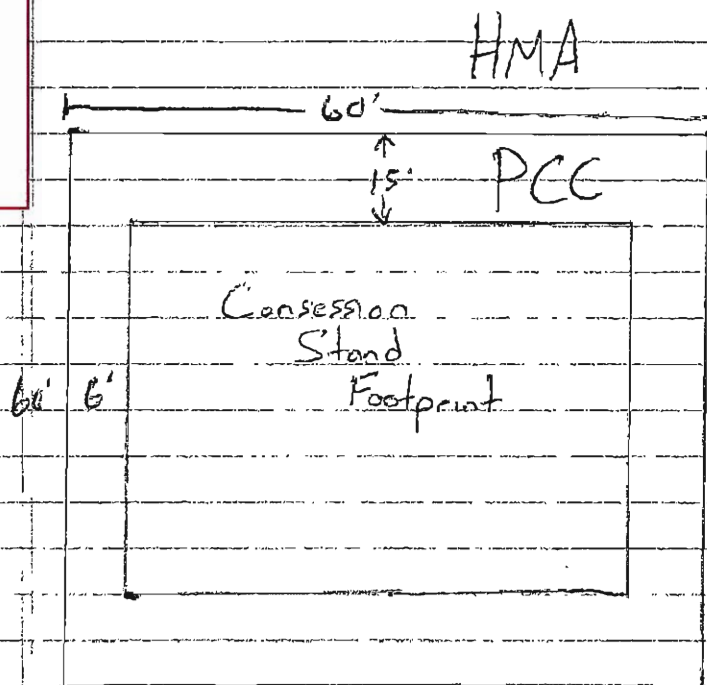 HMA
60'
15'
PCC
Consession
Stand
Footprint
60'
6'